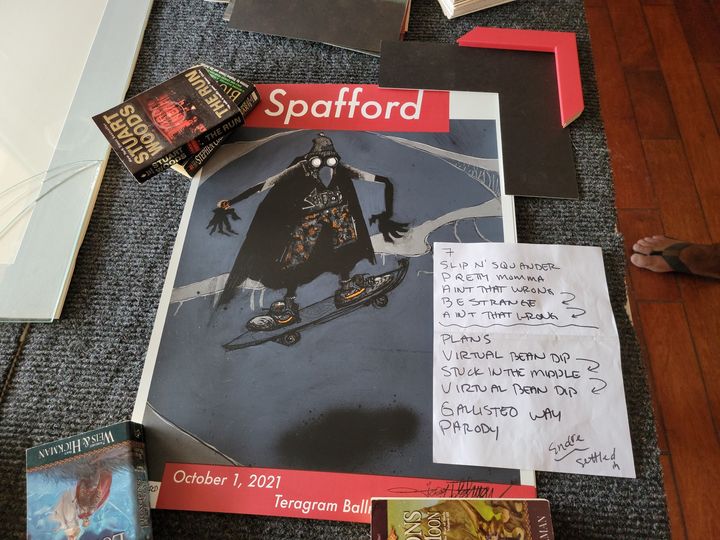 Spafford
STUART
WOODS
THE RUN
THE RUN
7
SLIP N' SQUANDER
PRETTY MOMMA
AINT THAT WRONG
BE STRANGE
AINT THAT WRONG
PLANS
VIRTUAL BEAN DIP
STUCK IN THE MIDDLE
VIRTUAL BEAN DIP
GALLISTEO WAY
PARODY
WEIS & HICKMAN
October 1, 2021
Teragram